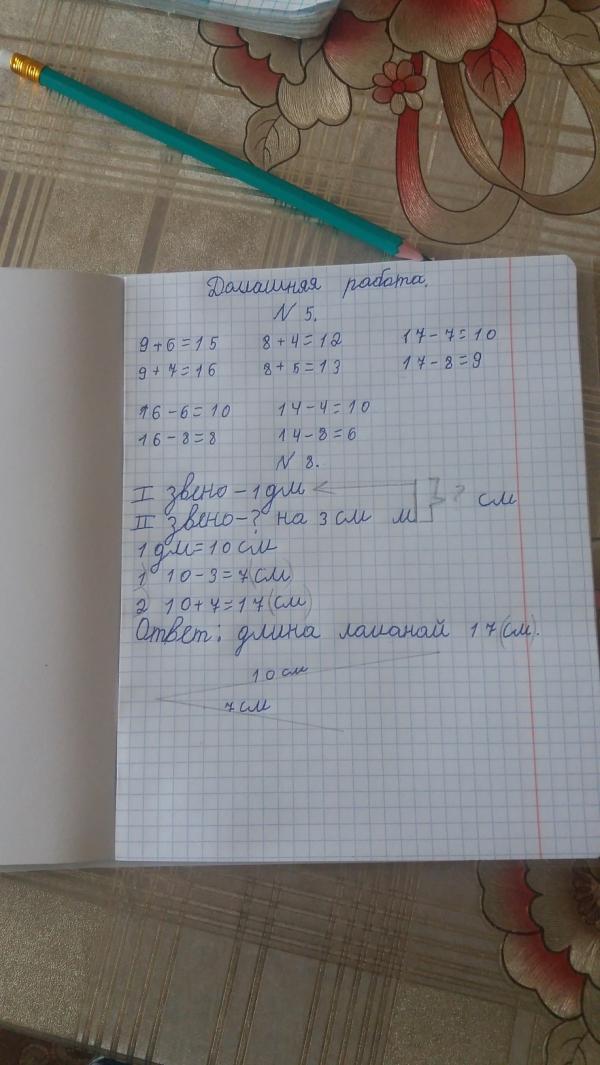 Домашняя работа.
N 5.
9+6=15 8+4=12 17-7=10
9+7=16 8+5=13 17-8=9
16-6=10 14-4=10
16-8=8 14-8=6
N 8.
I звено-1дм
II звено-? на 3 см м } ? см
1 дм=10 см
1) 10-3=7(см)
2) 10+7=17(см)
Ответ: длина ламанай 17(см).
10 см
7 см